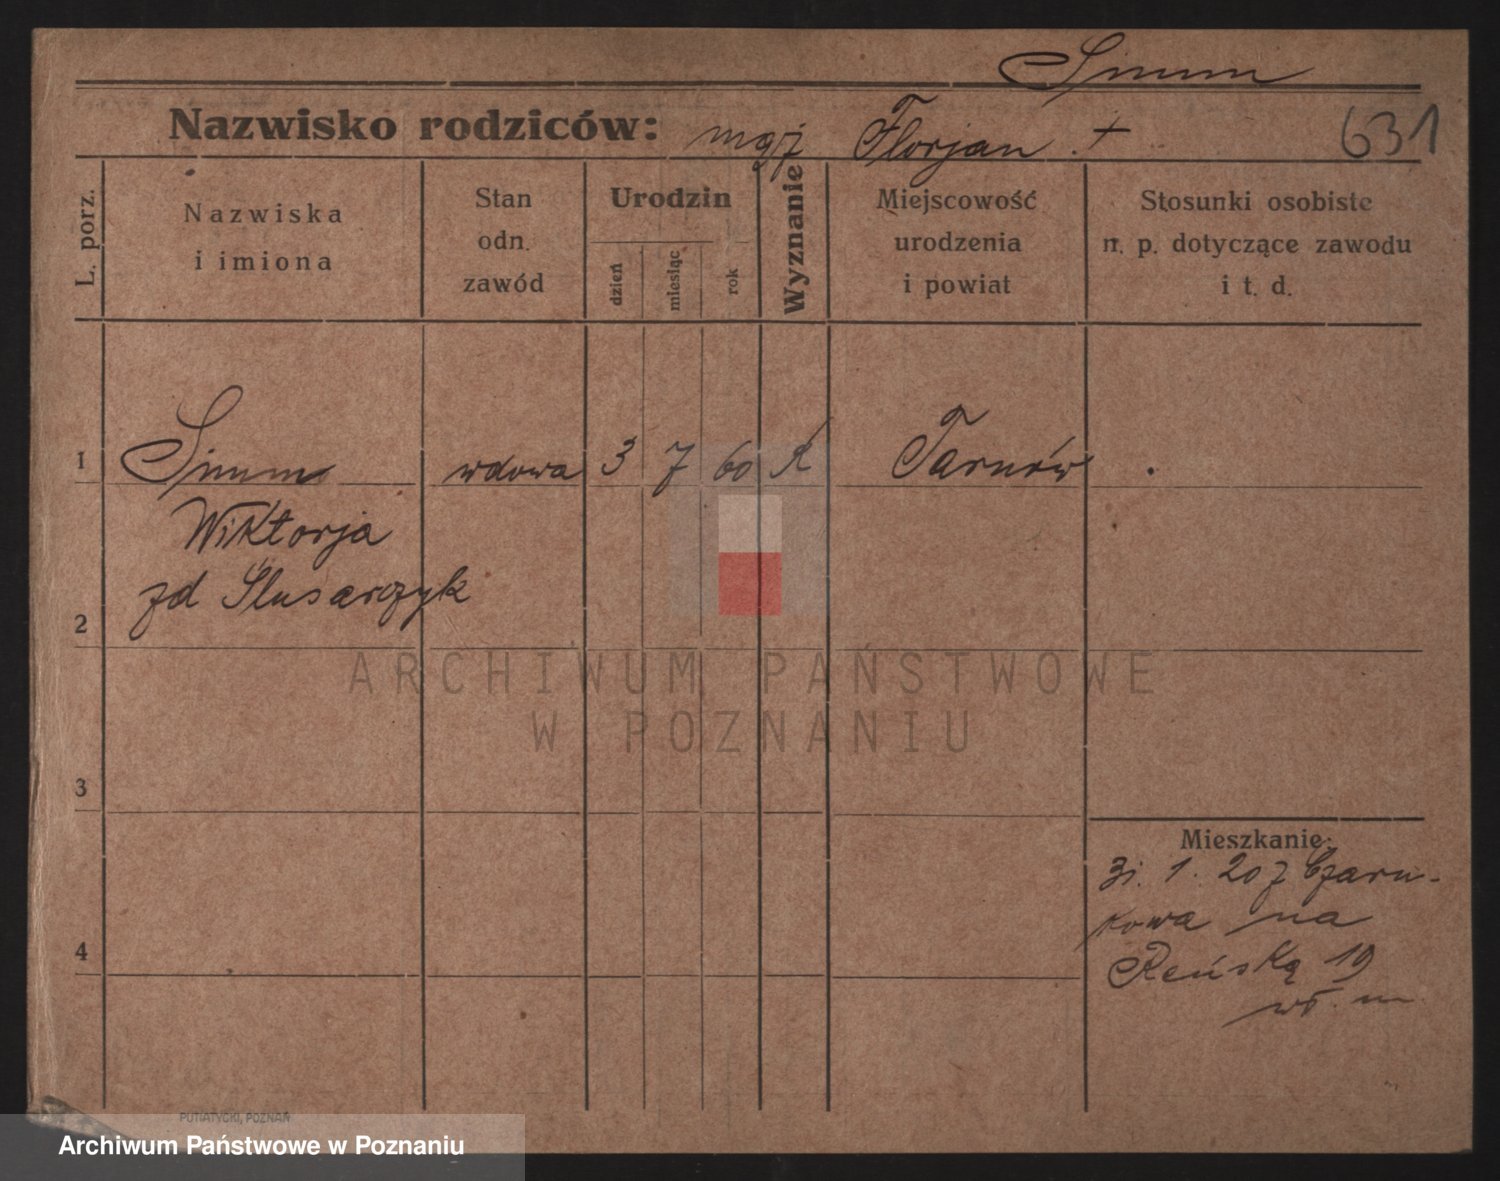 Simm
Nazwisko rodziców: mąż Florjan . +
631
L. porz.
Nazwiska
i imiona
Stan
odn.
zawód
Urodzin
dzień
miesiąc
rok
Wyznanie
Miejscowość
urodzenia
i powiat
Stosunki osobiste
n. p. dotyczące zawodu
i t. d.
1
Simm wdowa 3 7 60 K Tarnów
Wiktorja
zd Ślusarczyk
2
ARCHIWUM PAŃSTWOWE
W POZNANIU
3
Mieszkanie:
31. 1. 20 z Czarn-
kowa na
Reńską 19
wł. m
4
PUTIATYCKI, POZNAŃ
Archiwum Państwowe w Poznaniu